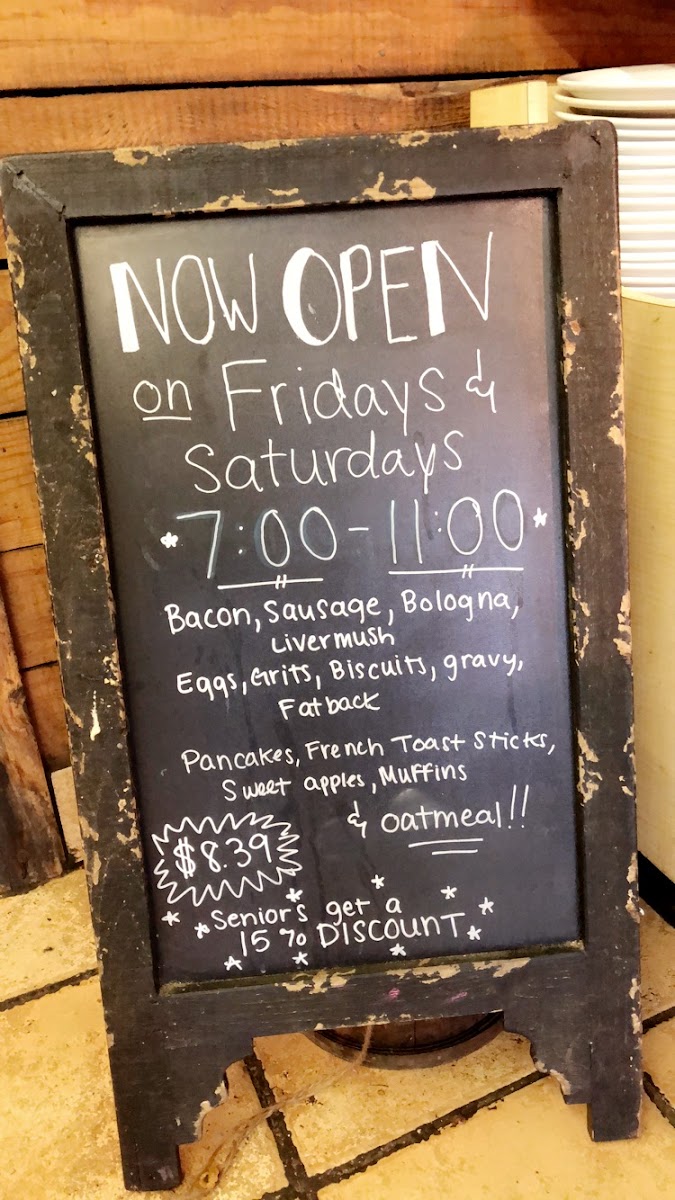 NOW OPEN
on Fridays &
Saturdays
*7:00-11:00*
Bacon, Sausage, Bologna,
Livermush
Eggs, Grits, Biscuits, gravy,
Fatback
Pancakes, French Toast Sticks,
Sweet apples, Muffins
& oatmeal!!
$8.39
Seniors get a
15% DISCOUNT